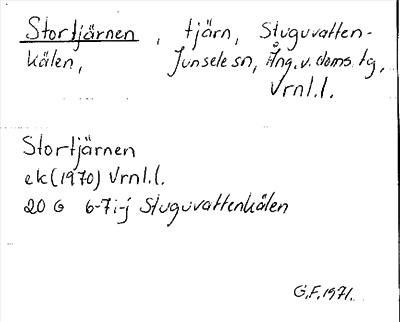 Stortjärnen, tjärn, Stuguvatten-
kälen, Junsele sn, Ång. v. doms. tg,
Vrnl.l.
Stortjärnen
ek (1970) Vrnl.l.
20 G 6-7i-j Stuguvattenkälen
G.F. 1971.